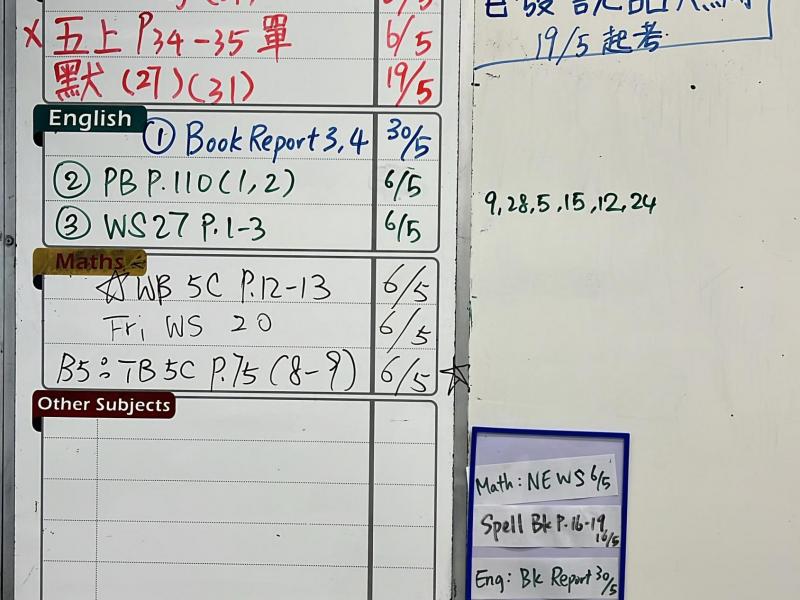 6/5
X 五上 P34-35 單 6/5
默 (27)(31) 19/5
English
① Book Report 3, 4 30/5
② PB P.110(1,2) 6/5
③ WS27 P.1-3 6/5
Maths
☆ WB 5C P.12-13 6/5
Fri WS 20 6/5
B5: TB 5C P.75 (8-9) 6/5 ☆
Other Subjects
19/5 起考
9, 28, 5, 15, 12, 24
Math: NEWS 6/5
Spell Bk P.16-19 16/5
Eng: Bk Report 30/5